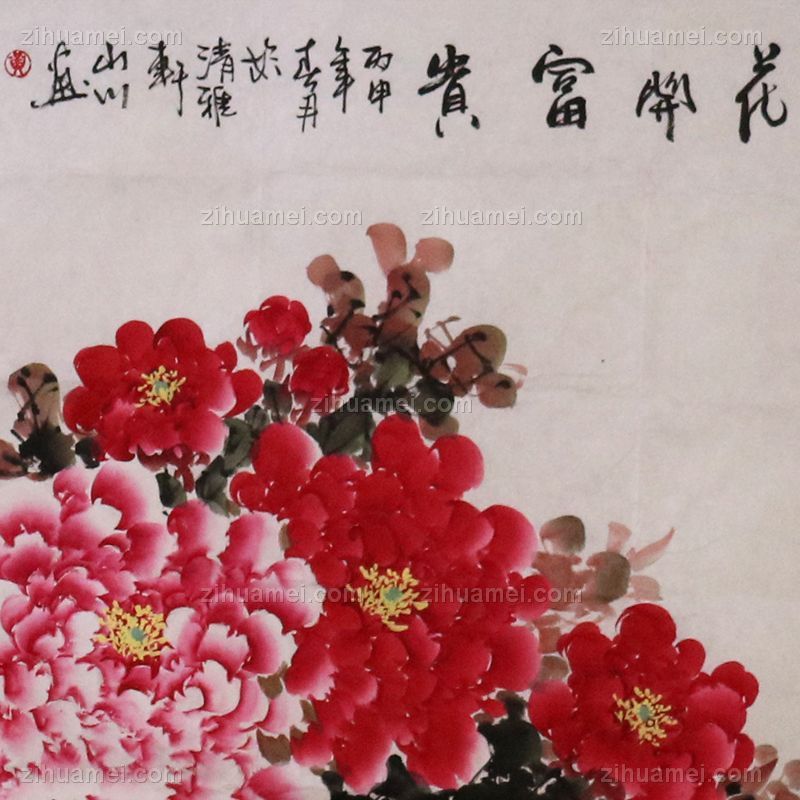 花開富貴
丙申年春月於清雅軒山川畫
zihuamei.com zihuamei.com zihuamei.com zihuamei.com
zihuamei.com zihuamei.com
zihuamei.com zihuamei.com
zihuamei.com zihuamei.com zihuamei.com
zihuamei.com zihuamei.com zihuamei.com zihuamei.com